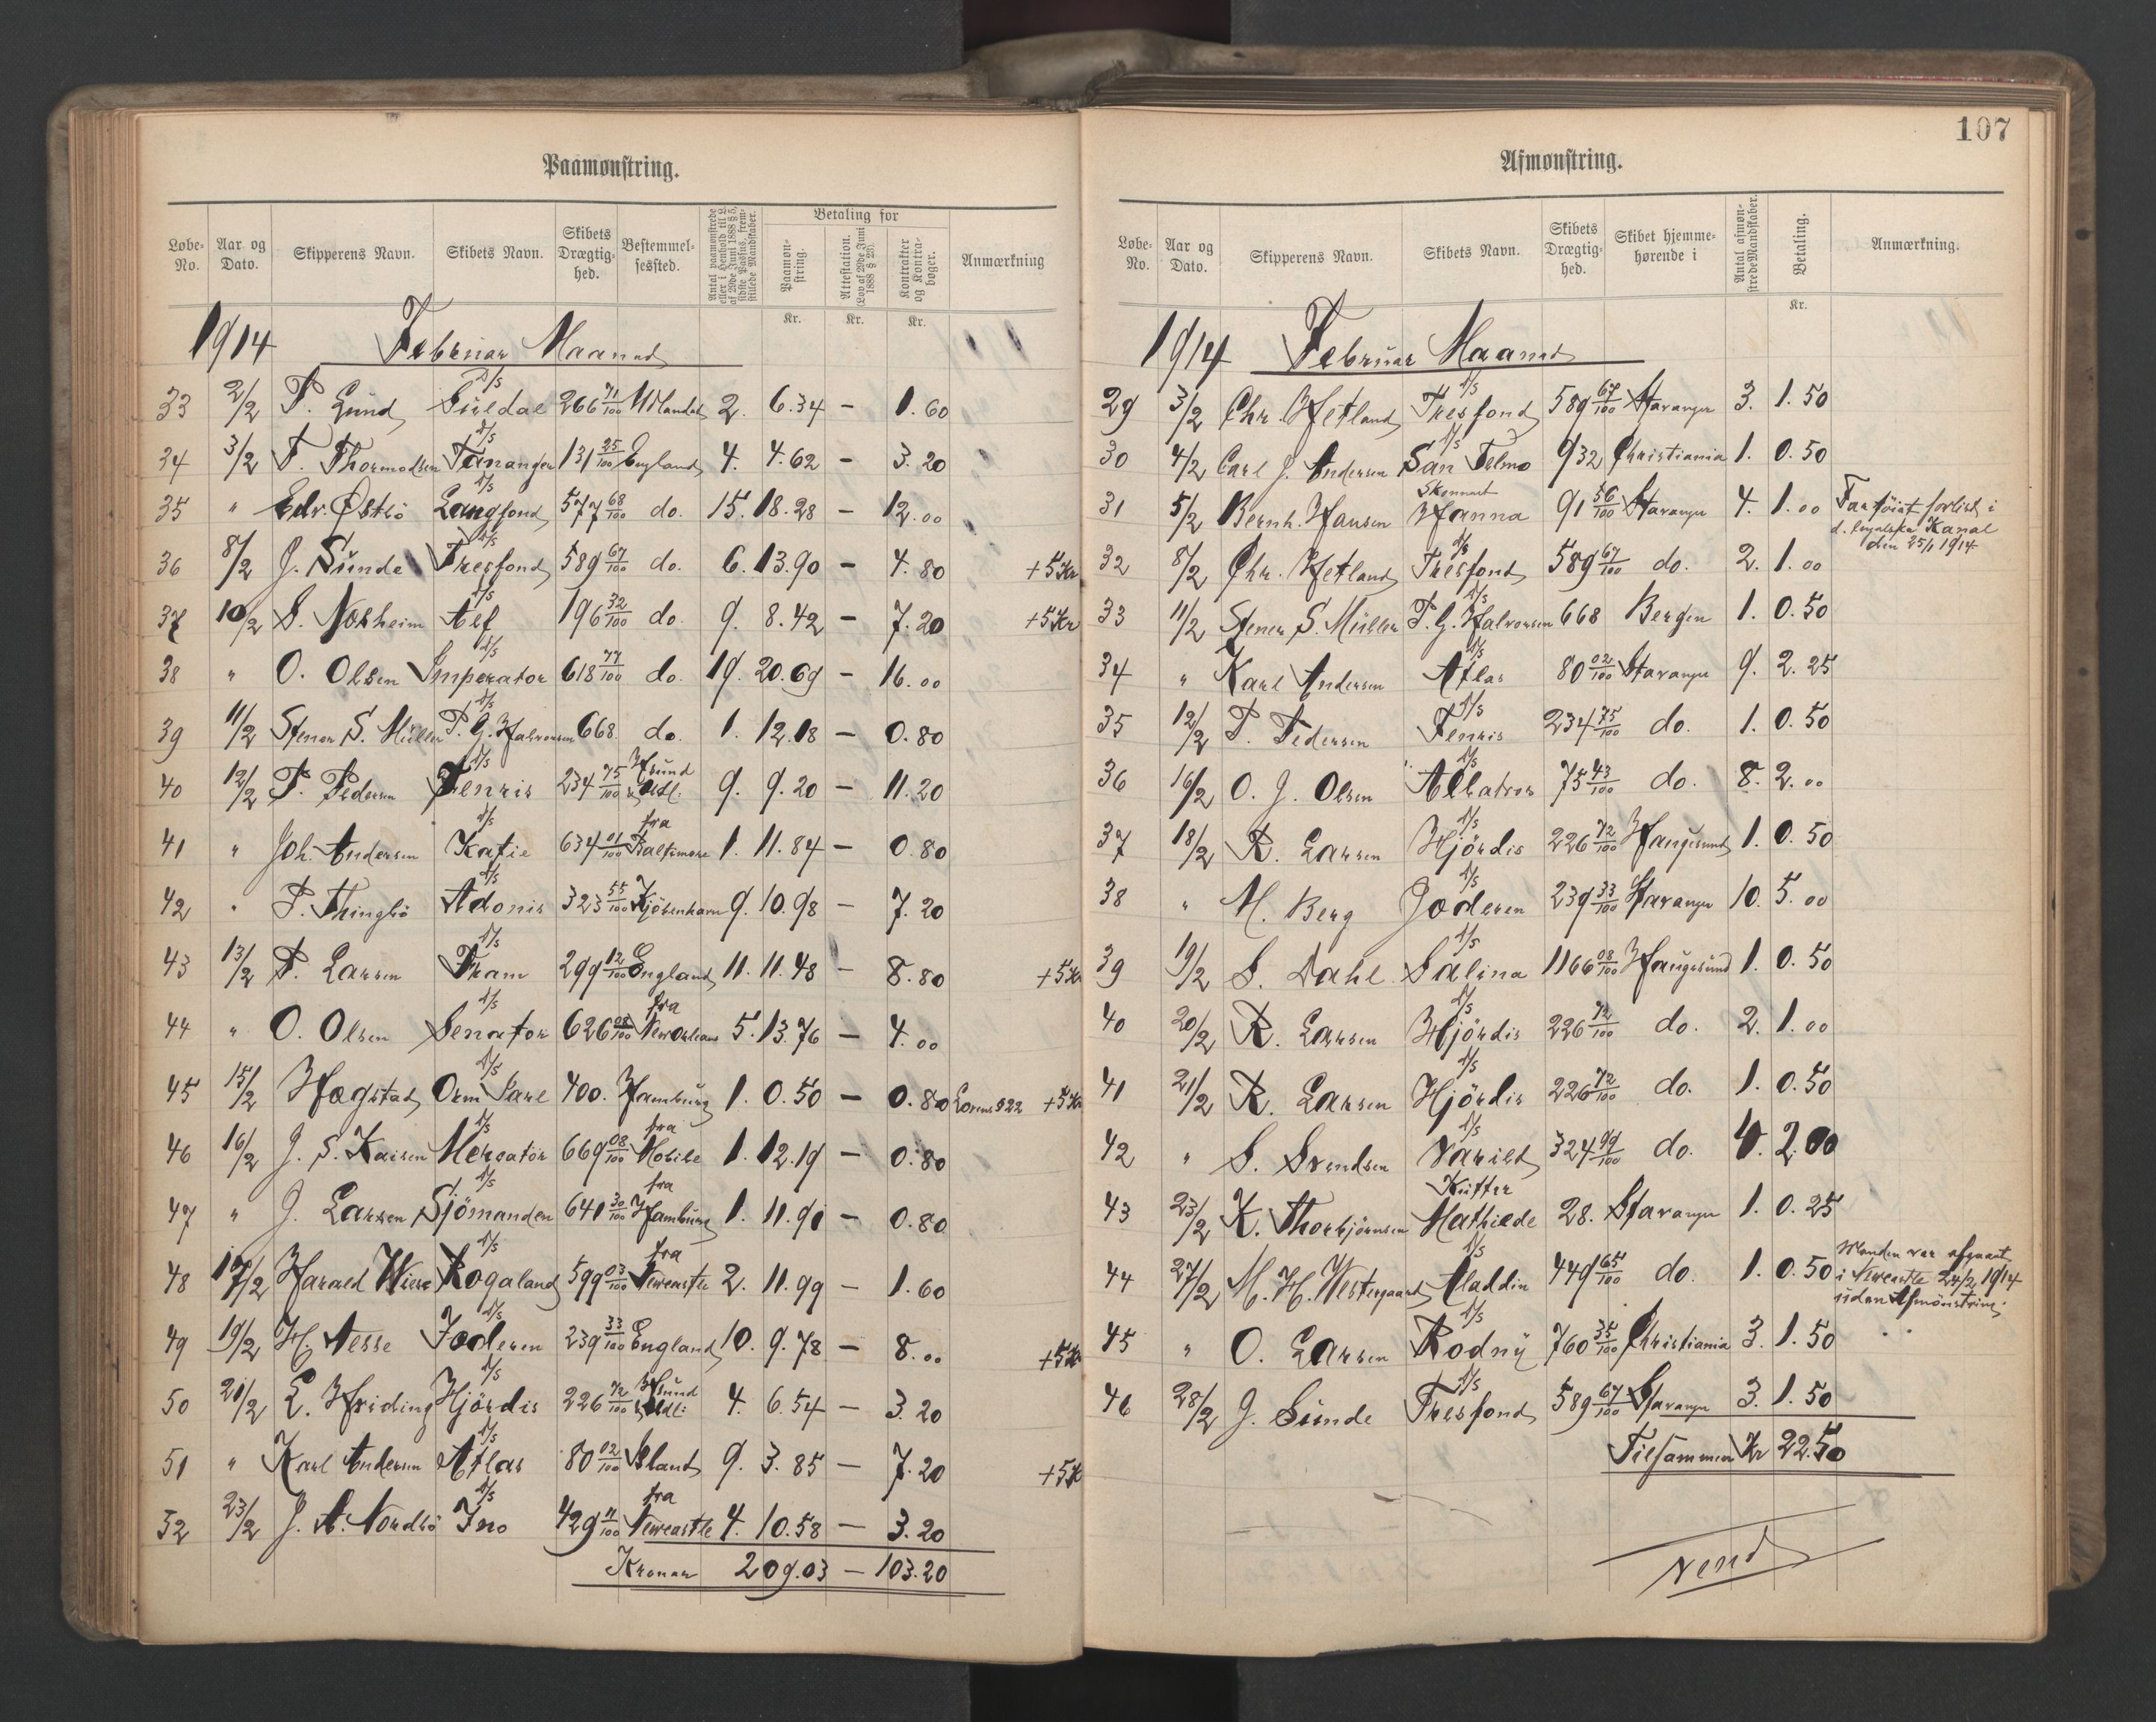 Paamønstring.
Løbe-No. Aar og Dato. Skipperens Navn. Skibets Navn. Skibets Drægtighed. Bestemmelsessted. Antal paamønstrede eller i Henhold til L. af 29de Juni 1888 § 5, sidste Passus, fremstillede Mandskaber. Betaling for Paamønstring. Attestation. (Lov af 29de Juni 1888 § 23). Kontrakter og Kontrabøger. Anmærkning
Kr. Kr. Kr.
1914 Februar Maaned
33 2/2 P. Lund D/S Suldal 266 71/100 Udlandet 2. 6.34 — 1.60
34 3/2 T. Thormodsen D/S Tananger 131 25/100 England 4. 4.62 — 3.20
35 " Edv. Østbö D/S Langfond 577 68/100 do. 15. 18.28 — 12.00
36 8/2 J. Sunde D/S Thesfond 589 67/100 do. 6. 13.90 — 4.80 +5 Kr
37 10/2 S. Norheim D/S Alf 196 32/100 do. 9. 8.42 — 7.20 +5 Kr
38 " O. Olsen D/S Imperator 618 77/100 do. 19. 20.69 — 16.00
39 11/2 Stener S. Müller D/S P. G. Halvorsen 668. do. 1. 12.18 — 0.80
40 12/2 P. Pedersen D/S Fenris 234 75/100 Hsund & Udl. 9. 9.20 — 11.20
41 " Joh. Andersen D/S Katie 634 01/100 fra Baltimore 1. 11.84 — 0.80
42 " P. Thingbö D/S Adonis 323 55/100 Kjöbenhavn 9. 10.98 — 7.20
43 13/2 P. Larsen D/S Fram 299 12/100 England 11. 11.48 — 8.80 +5 Kr
44 " O. Olsen D/S Senator 626 08/100 fra New Orleans 5. 13.76 — 4.00
45 15/2 Hogstad D/S Orm Jarl 400. Hamburg 1. 0.50 — 0.80 +5 Kr
46 16/2 J. S. Kaisen D/S Mercator 669 08/100 fra Mobile 1. 12.19 — 0.80
47 " J. Larsen D/S Sjömanden 641 30/100 fra Hamburg 1. 11.91 — 0.80
48 17/2 Harald Wiese D/S Rogaland 599 03/100 fra Newcastle 2. 11.99 — 1.60
49 19/2 H. Nesse D/S Joderen 239 33/100 England 10. 9.78 — 8.00 +5 Kr
50 21/2 E. Hriding D/S Hjördis 226 72/100 Hsund & Udl: 4. 6.54 — 3.20
51 " Karl Andersen D/S Atlas 80 02/100 Island 9. 3.85 — 7.20 +5 K
52 23/2 J. A. Nordbö D/S Ino 429 71/100 fra Newcastle 4. 10.58 — 3.20
Kroner 209.03 — 103.20
107
Afmønstring.
Løbe-No. Aar og Dato. Skipperens Navn. Skibets Navn. Skibets Drægtighed. Skibet hjemmehørende i Antal afmønstrede Mandskaber. Betaling. Anmærkning.
Kr.
1914 Februar Maaned
29 3/2 Chr. Hetland D/S Thesfond 589 67/100 Stavanger 3. 1.50
30 4/2 Carl J. Andersen D/S San Telmo 932 Christiania 1. 0.50
31 5/2 Bernh. Hansen Skonnert Hanna 91 56/100 Stavanger 4. 1.00 Fartöiet forlist i
d. engelske Kanal
den 25/1 1914
32 8/2 Chr. Hetland D/S Thesfond 589 67/100 do. 2. 1.00
33 11/2 Stener S. Müller D/S P. G. Halvorsen 668 Bergen 1. 0.50
34 " Karl Andersen D/S Atlas 80 02/100 Stavanger 9. 2.25
35 12/2 P. Pedersen D/S Fenris 234 75/100 do. 1. 0.50
36 16/2 O. J. Olsen D/S Albatros 75 43/100 do. 8. 2.00
37 18/2 R. Larsen D/S Hjördis 226 72/100 Haugesund 1. 0.50
38 " M. Berg D/S Joderen 239 33/100 Stavanger 10. 5.00
39 19/2 S. Dahl D/S Salina 1166 08/100 Haugesund 1. 0.50
40 20/2 R. Larsen D/S Hjördis 226 72/100 do. 2. 1.00
41 21/2 R. Larsen D/S Hjördis 226 72/100 do. 1. 0.50
42 " S. Svendsen D/S Varild 324 99/100 do. 4. 2.00
43 23/2 K. Thorbjörnsen Kutter Mathilde 28. Stavanger 1. 0.25
44 27/2 M. H. Westergaard D/S Aladdin 449 65/100 do. 1. 0.50 Manden var afgaaet
i Newcastle 24/2 1914
uden Afmönstring.
45 " O. Larsen D/S Rodny 760 35/100 Christiania 3. 1.50
46 28/2 J. Sunde D/S Thesfond 589 67/100 Stavanger 3. 1.50
Tilsammen Kr 22.50
Vend